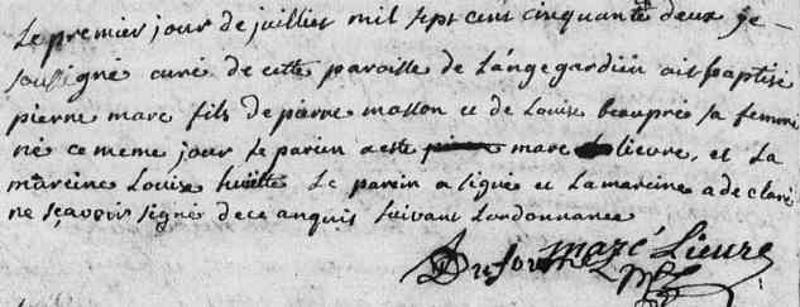 Le premier jour de juillier mil sept cent cinquante deux je
soussigné curé de cette paroisse de L'angegardien ait baptisé
pierre marc fils de pierre masson et de Louise beaupré sa femme
né ce meme jour Le parien a esté marc lievre, et La
mareine Louise huiette Le parein a signé et La mareine a declaré
ne sçavoir signé de ce anquis suivant Lordonnance
Dufour marc Lieure